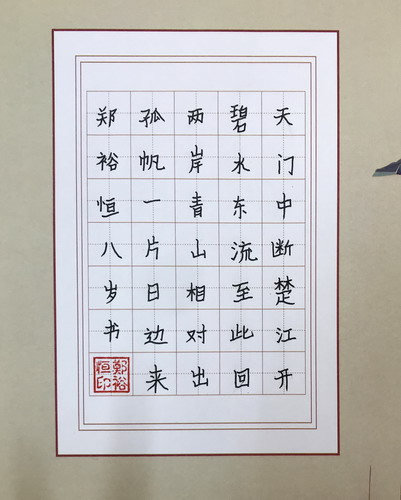 天门中断楚江开
碧水东流至此回
两岸青山相对出
孤帆一片日边来
郑裕恒八岁书
鄭裕恒印